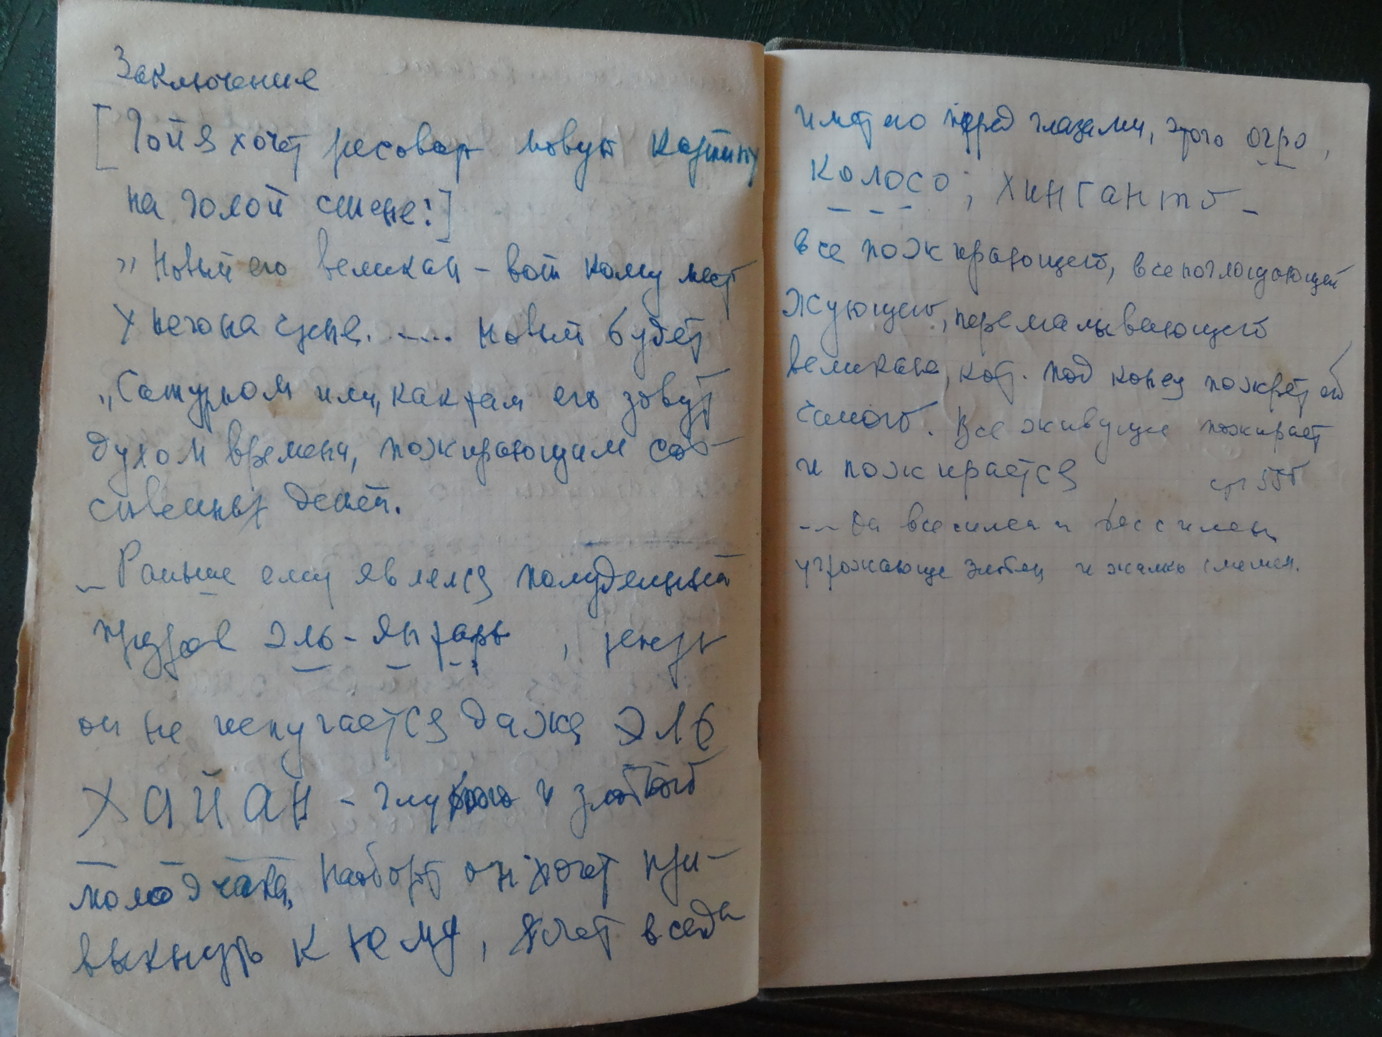 Заключение
[Гойя хочет рисовать новую картину
на голой стене:]
„Новый его великан – вот кому место
у него на стене. .... новый будет
„Сатурном или, как там его зовут
духом времени, пожирающим соб-
ственных детей.
– Раньше ему являлся полуденный
призрак Эль-Янтарь, теперь
он не испугается даже Эль
Хайан – глупого и злого
молодчага, наоборот он хочет при-
выкнуть к нему, хочет всегда
иметь его перед глазами, этого огро,
колосо; хинганто –
все пожирающего, все поглощающего
жующего, перемалывающего
великана, кот. под конец пожрет его
самого. Все живущее пожирает
и пожирается стр 556
.... Он всесилен и бессилен,
угрожающе злобен и жалко смешон.